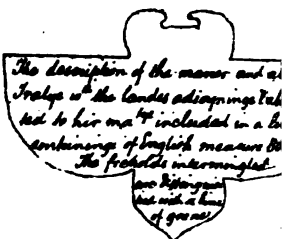 The description of the maner and
Tralye wth the landes adioyninge
ted to hir matye included in a
conteinings of English measure
The freholds intermingled
are
ted with a line
of greene